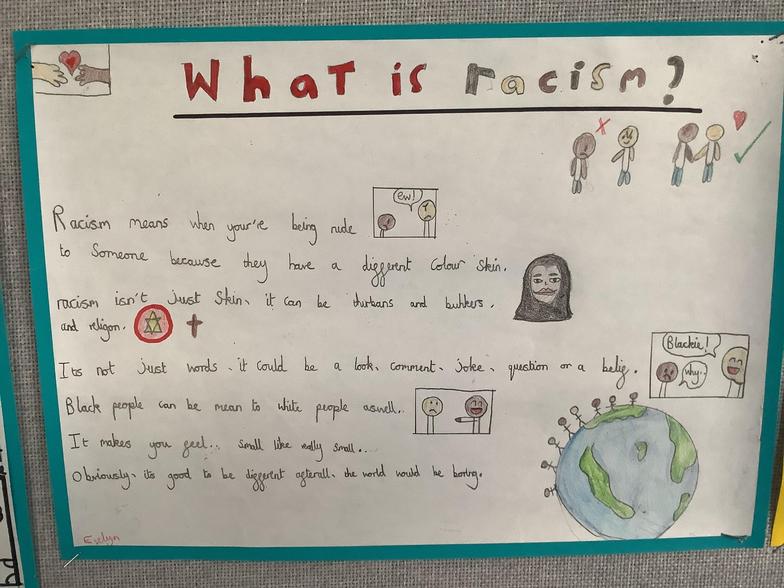 What is racism?
Racism means when your're being rude
ew!
to Someone because they have a different Colour Skin.
racism isn't just Skin, it can be thurbans and buhkers.
and religon.
Its not just words, it could be a look, comment, joke, question or a belig.
Blackie!
why..
Black people can be mean to white people aswell..
It makes you feel.. small like really small...
Obviously, its good to be different afterall, the world would be boring.
Evelyn